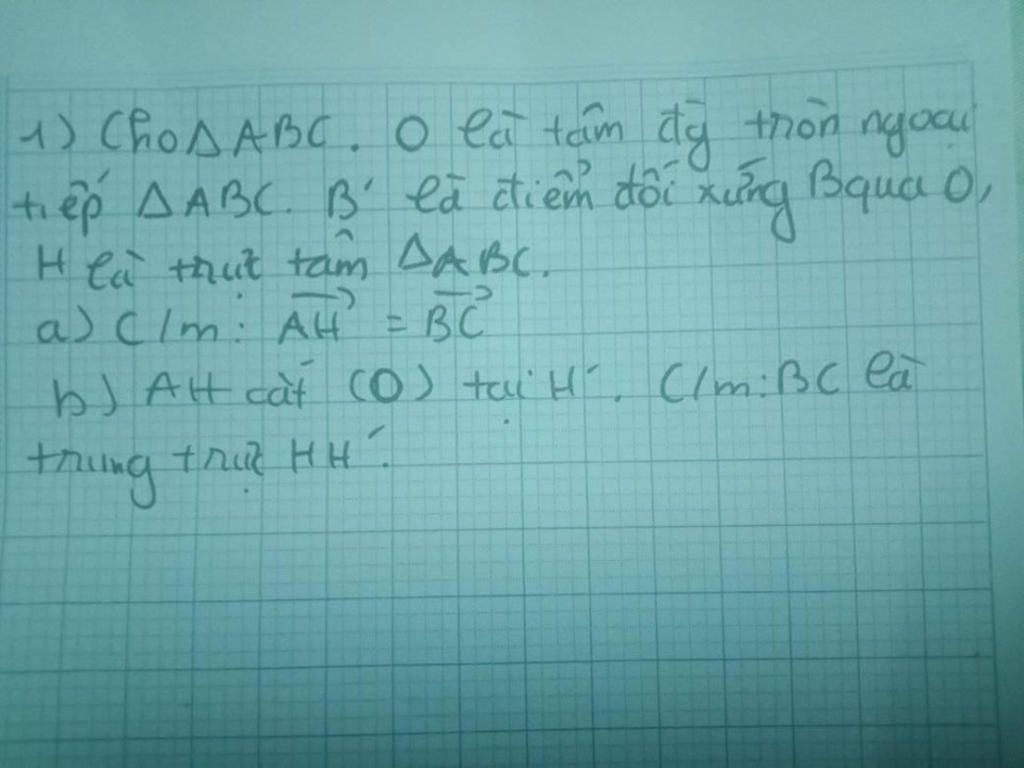 1) Cho Δ ABC. O là tâm đg tròn ngoại
tiếp Δ ABC. B' là điểm đối xứng B qua O,
H là trực tâm Δ ABC.
a) C/m: \overrightarrow{AH} = \overrightarrow{BC}
b) AH cắt (O) tại H'. C/m: BC là
trung trực HH'.